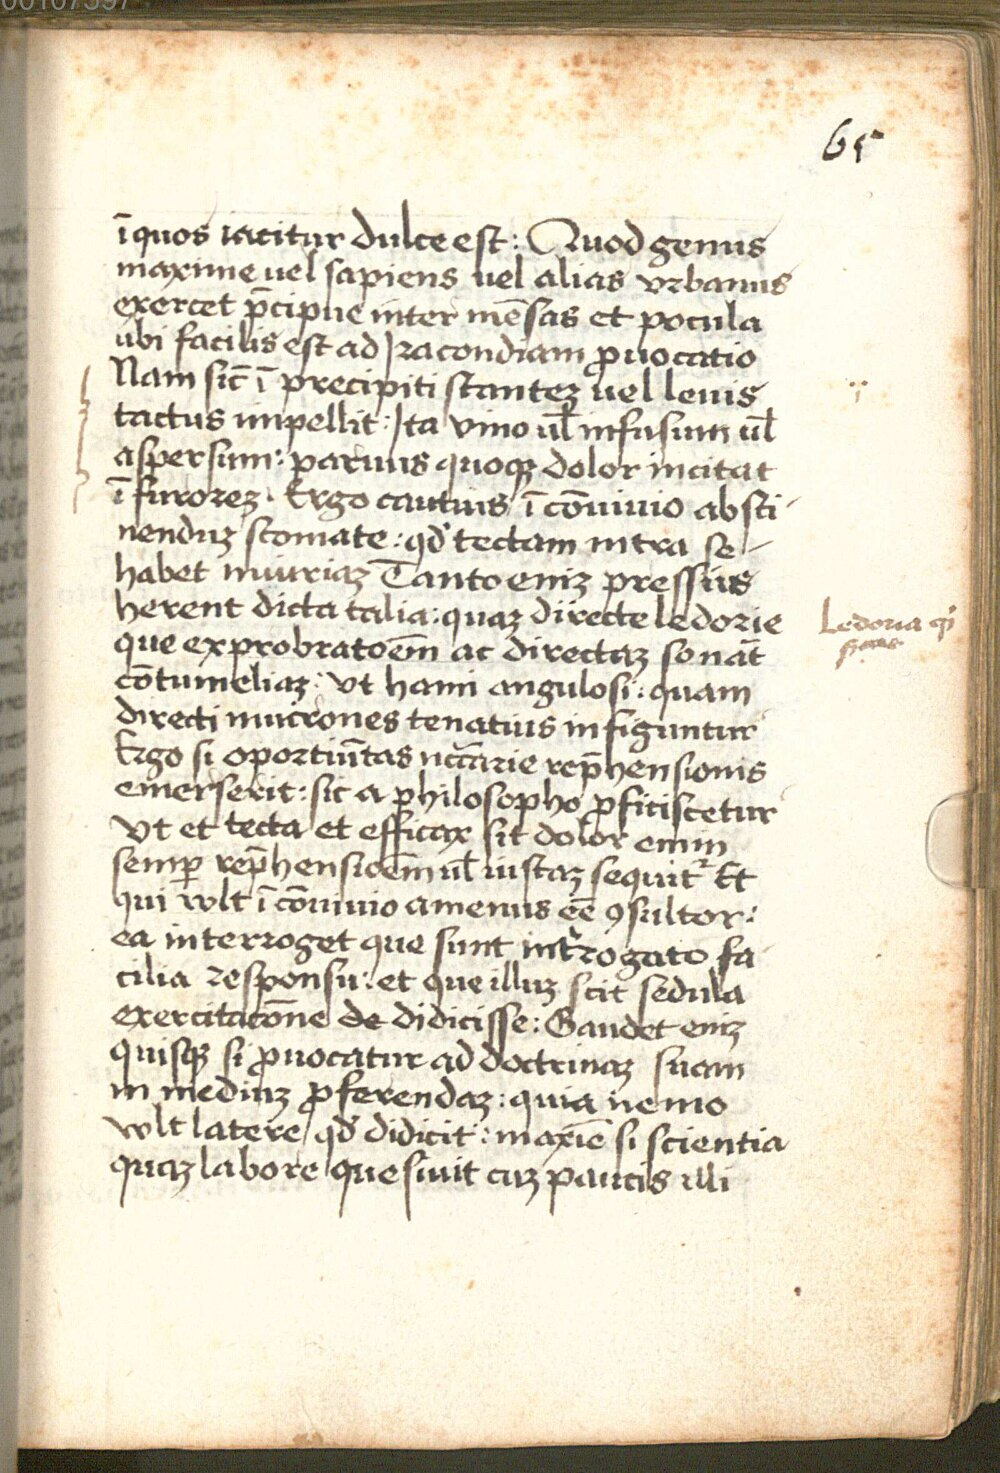 00107597
65
ī quos iacitur dulce est: Quod genus
maxime uel sapiens uel alias vrbanus
exercet p̄cipue inter mēsas et pocula
ubi facilis est ad Iracondiam ꝓuocatio
Nam sic̄ ī precipiti stanteꝫ uel leuis
tactus impellit: Ita vino ul̄ infusum ul̄
aspersum: paruus quoqꝫ dolor incitat
ī furoreꝫ. Ergo cautius ī cōuiuio absti-
nenduꝫ scomate: qd̓ tectam intra se-
habet iniuriaꝫ Tanto eniꝫ pressius
herent dicta talia: quaꝫ directe ledorie
Ledoria
que exprobratoēm ac directaꝫ sonāt
cōtumeliaꝫ: vt hami angulosi: quam
directi mucrones tenatius infiguntur
Ergo si oportuītas nccārie rep̄hensionis
emerserit: sic a philosopho ꝓficiscetur
vt et tecta et efficax sit dolor enim
semꝑ rep̄hensioēm ul̄ iustaꝫ sequit᷑ Et
qui vult ī cōuiuio amenus eē ꝯsultor:
ea interroget que sunt int̓rogato fa
cilia responsu: et que illuꝫ scit sedula
exercitacōne de didicisse: Gaudet eniꝫ
quisqꝫ si ꝓuocatur ad doctrinaꝫ suam
in mediuꝫ ꝓferendaꝫ: quia nemo
vult latere qd̓ didicit: maxīe si scientia
quaꝫ labore quesiuit cuꝫ paucis illi